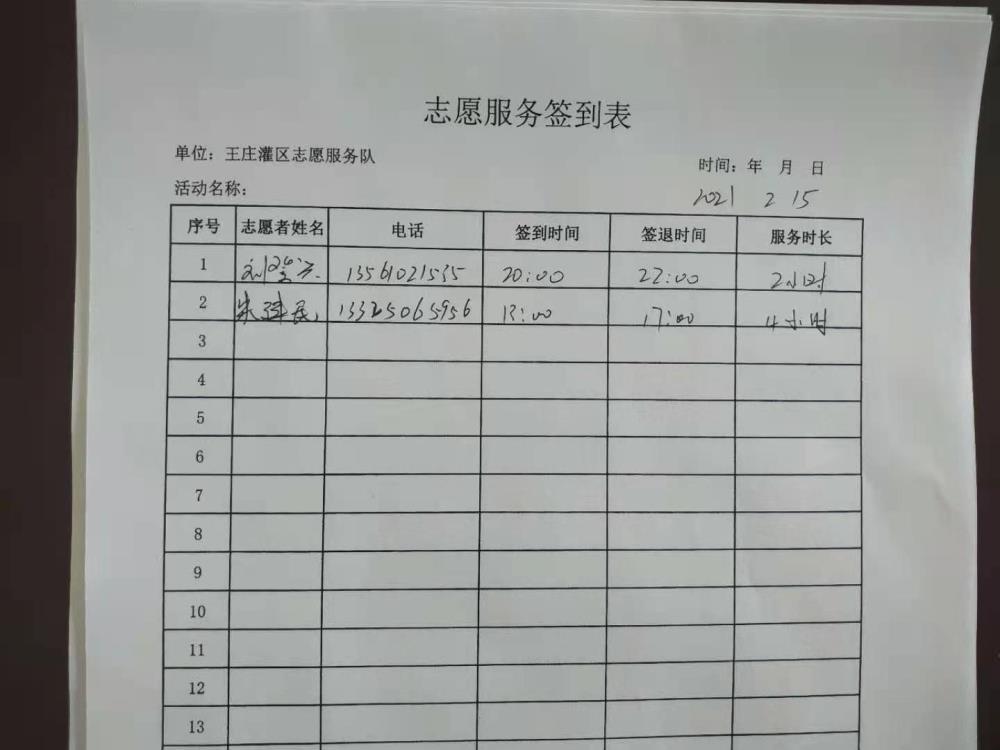 志愿服务签到表
单位：王庄灌区志愿服务队
时间：年 月 日
活动名称：
2021 2 15
序号 志愿者姓名 电话 签到时间 签退时间 服务时长
1 刘 13561021535 20:00 22:00 2小时
2 朱 民 13325065956 13:00 17:00 4小时
3
4
5
6
7
8
9
10
11
12
13